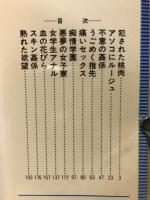 目次
犯された桃肉 3
アソコにルージュ 23
不意の姦係 47
うごめく指先 63
痛いセックス 80
痴情学園 97
悪夢の女子寮 111
女学生アナル 137
血の花びら 157
スキン姦係 176
熟れた欲望 193